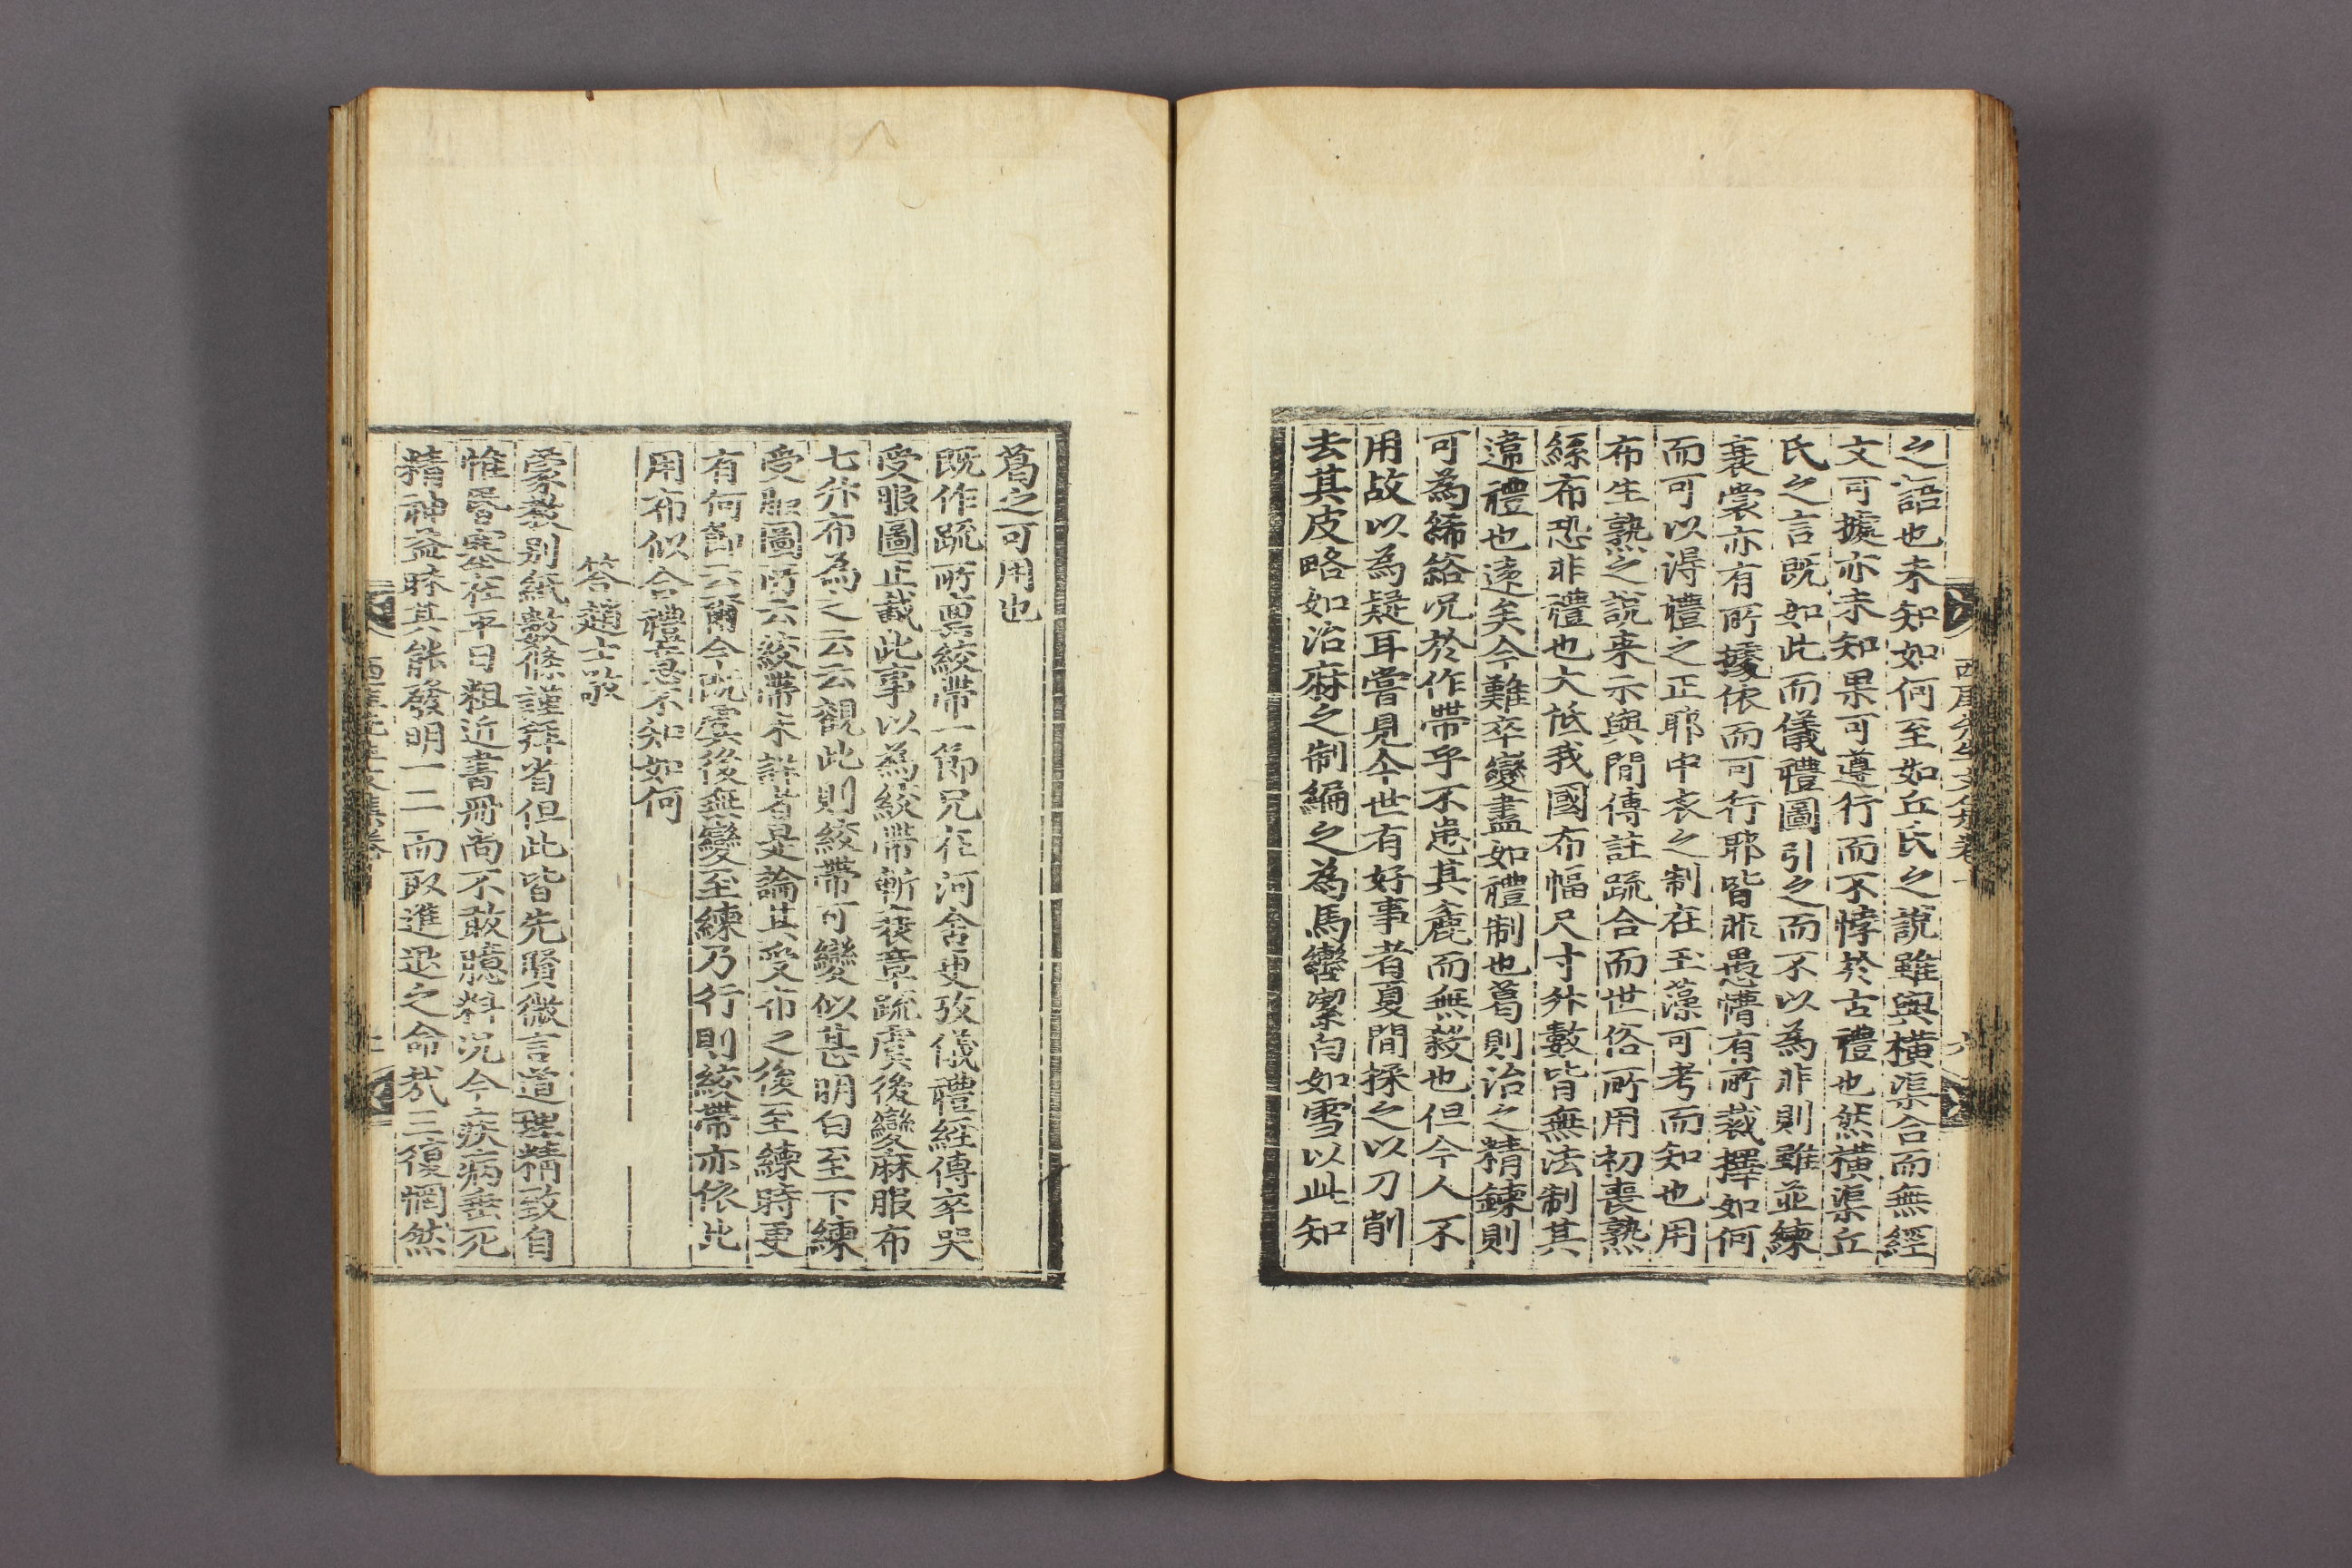 之語也未知如何至如丘氏之說雖與橫渠合而無經
文可據亦未知果可遵行而不悖於古禮也然橫渠丘
氏之言旣如此而儀禮圖引之而不以為非則雖並練
衰裳亦有所據依而可行耶皆非愚懵有所裁擇如何
而可以得禮之正耶中衣之制在玉藻可考而知也用
布生熟之說来示與間傳註疏合而世俗所用初喪熟
絲布恐非禮也大抵我國布幅尺寸升數皆無法制其
違禮也遠矣今難卒變盡如禮制也葛則治之精鍊則
可為絺綌况於作帶乎不患其麁而無殺也但今人不
用故以為疑耳嘗見今世有好事者夏間採之以刀削
去其皮略如治麻之制編之為馬轡潔白如雪以此知
葛之可用也
旣作疏所稟絞帶一節兄在河舍更攷儀禮經傳卒哭
受服圖正載此事以為絞帶斬衰章疏虞後變麻服布
七升布為之云云觀此則絞帶可變似甚明白至下練
受服圖所云絞帶未詳者是論其受布之後至練時更
有何節云爾今旣虞後無變至練乃行則絞帶亦依此
用布似合禮意不知如何
答趙士敬
蒙教別紙數條謹拜省但此皆先賢微言道理精致自
惟昏塞在平日粗近書冊尙不敢臆料况今疾病垂死
精神益眊其能發明一二而取進退之命哉三復惘然